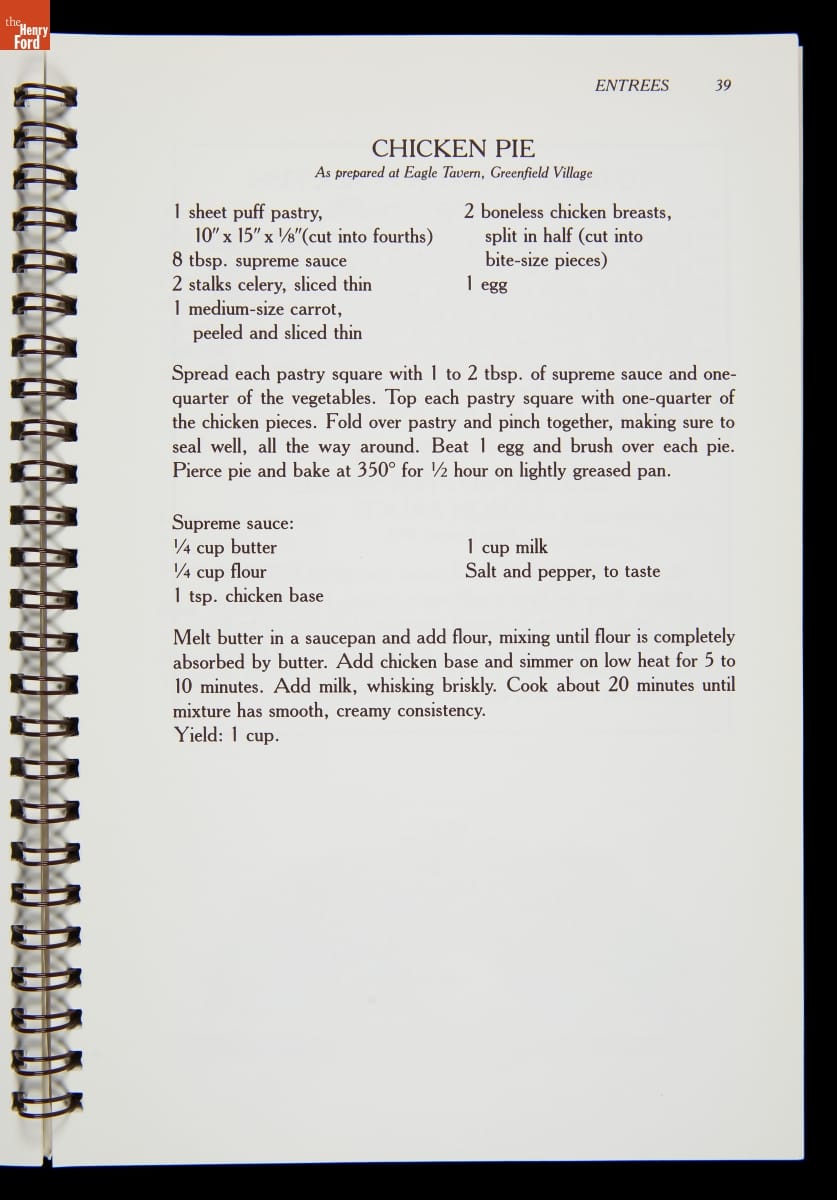 the
Henry
Ford
ENTREES 39
CHICKEN PIE
As prepared at Eagle Tavern, Greenfield Village
1 sheet puff pastry,
10" x 15" x ⅛"(cut into fourths)
8 tbsp. supreme sauce
2 stalks celery, sliced thin
1 medium-size carrot,
peeled and sliced thin
2 boneless chicken breasts,
split in half (cut into
bite-size pieces)
1 egg
Spread each pastry square with 1 to 2 tbsp. of supreme sauce and one-
quarter of the vegetables. Top each pastry square with one-quarter of
the chicken pieces. Fold over pastry and pinch together, making sure to
seal well, all the way around. Beat 1 egg and brush over each pie.
Pierce pie and bake at 350° for ½ hour on lightly greased pan.
Supreme sauce:
¼ cup butter
¼ cup flour
1 tsp. chicken base
1 cup milk
Salt and pepper, to taste
Melt butter in a saucepan and add flour, mixing until flour is completely
absorbed by butter. Add chicken base and simmer on low heat for 5 to
10 minutes. Add milk, whisking briskly. Cook about 20 minutes until
mixture has smooth, creamy consistency.
Yield: 1 cup.